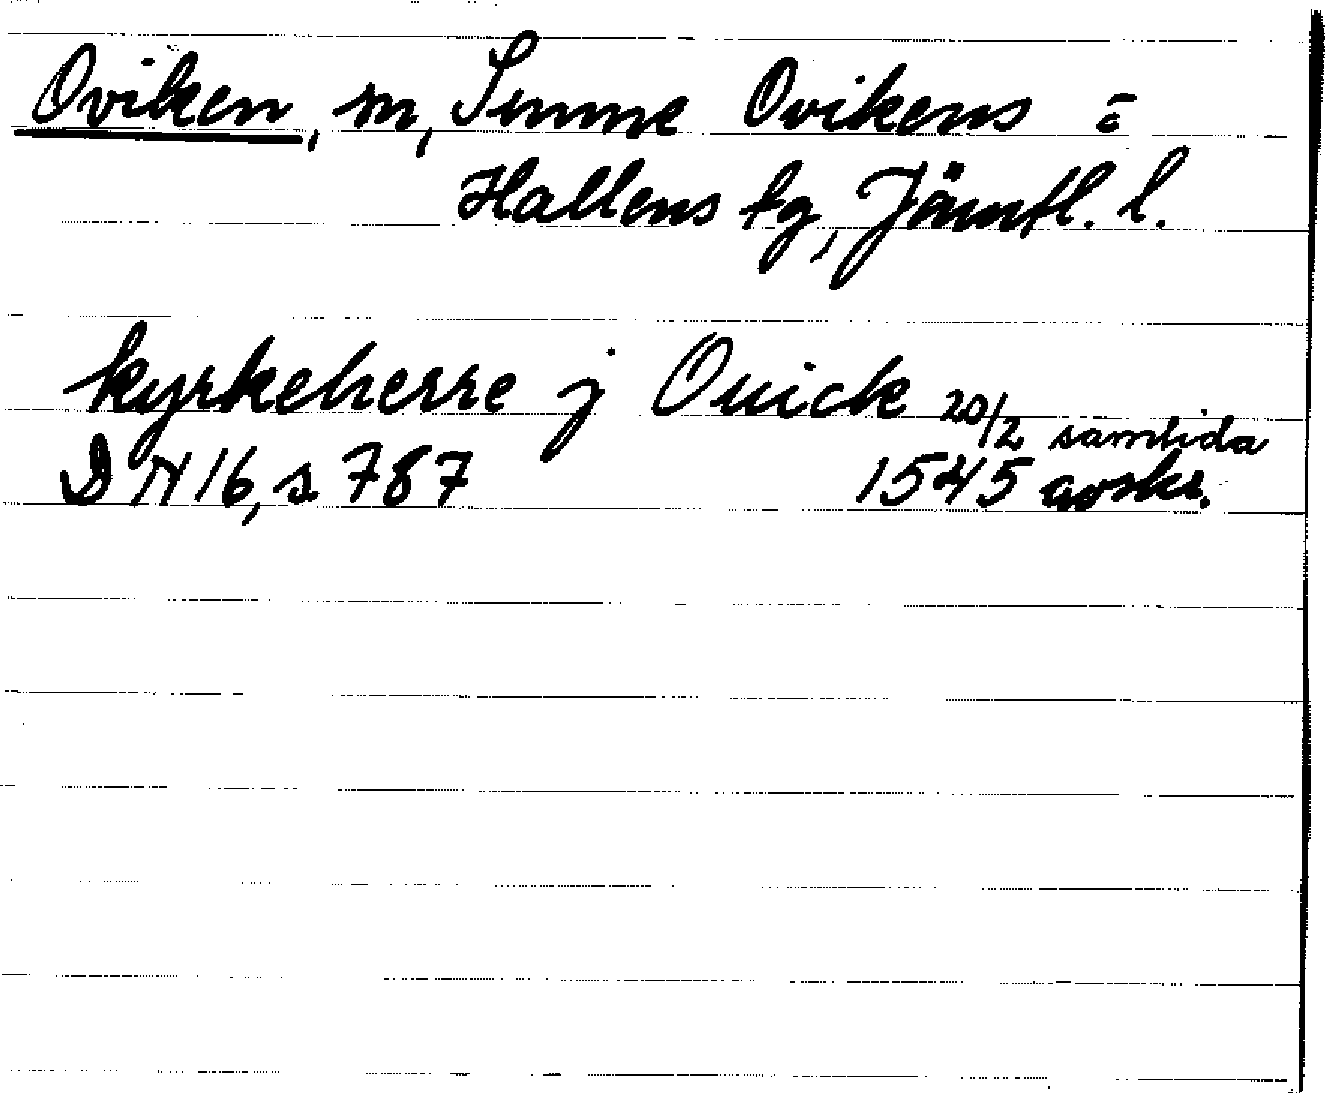 Oviken, sn, Sunne Ovikens o
Hallens tg, Jämtl. l.
kyrkeherre j Ouick 20/2 samtida
DN 16, s 787 1545 avskr.